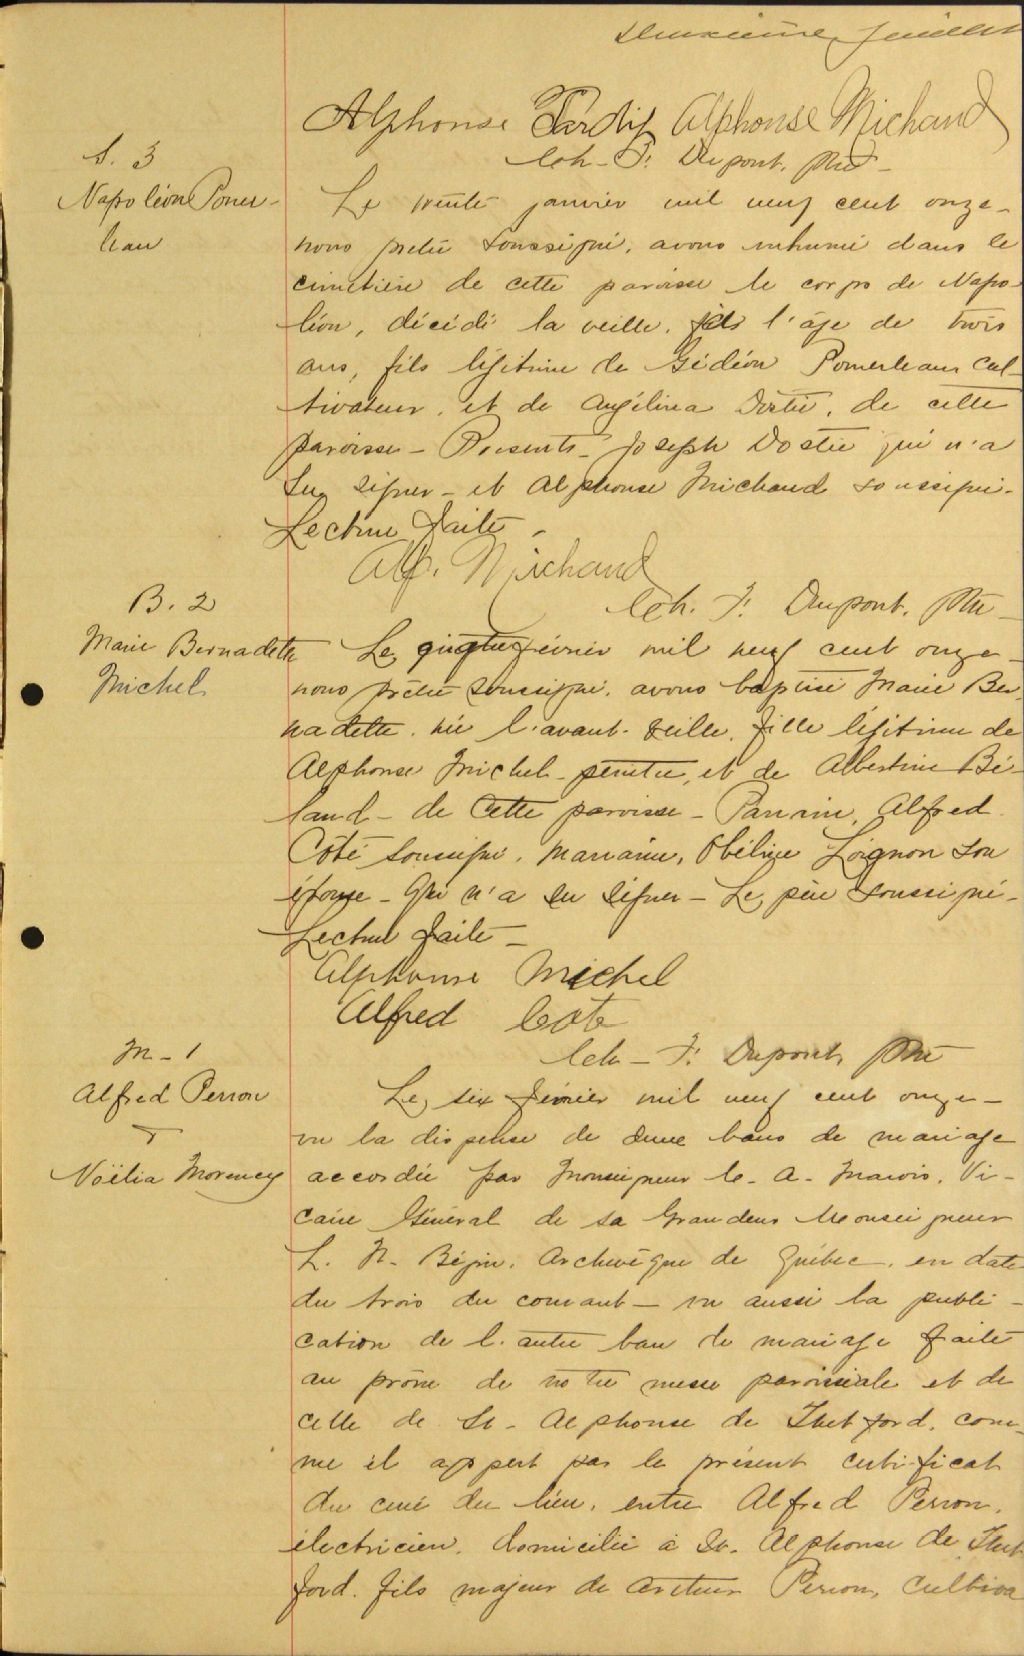 deuxième feuillet
Alphonse Tardif Alphonse Michaud
Ch. F. Dupont, Ptre
S. 3
Napoléon Pomer-
leau
Le trente janvier mil neuf cent onze-
nous prêtre soussigné, avons inhumé dans le
cimetière de cette paroisse le corps de Napo-
léon, décédé la veille, à l'âge de trois
ans, fils légitime de Gédéon Pomerleau cul-
tivateur, et de Angélina Dostie, de cette
paroisse - Présents - Joseph Dostie qui n'a
su signer - et Alphonse Michaud soussigné.
Lecture faite -
Alp. Michaud
Ch. F. Dupont, Ptre
B. 2
Marie Bernadette
Michel
Le février mil neuf cent onze -
nous prêtre soussigné, avons baptisé Marie Ber-
nadette, née l'avant-veille, fille légitime de
Alphonse Michel - peintre, et de Albertine Bé-
land - de cette paroisse - Parrain, Alfred
Côté soussigné, marraine, Obéline Loignon son
épouse - qui n'a su signer - Le père soussigné -
Lecture faite -
Alphonse Michel
Alfred Coté
Ch - F. Dupont, Ptre
M - 1
Alfred Perron
&
Noëlia Morency
Le six février mil neuf cent onze -
vu la dispense de deux bans de mariage
accordée par Monseigneur C. A. Marois, Vi-
caire Général de Sa Grandeur Monseigneur
L. N. Bégin, Archevêque de Québec, en date
du trois du courant - vu aussi la publi-
cation de l'autre ban de mariage faite
au prône de notre messe paroissiale et de
celle de St - Alphonse de Thetford, com-
me il appert par le présent certificat
du curé du lieu, entre Alfred Perron,
électricien, domicilié à St. Alphonse de Thet-
ford, fils majeur de Arthur Perron, cultiva